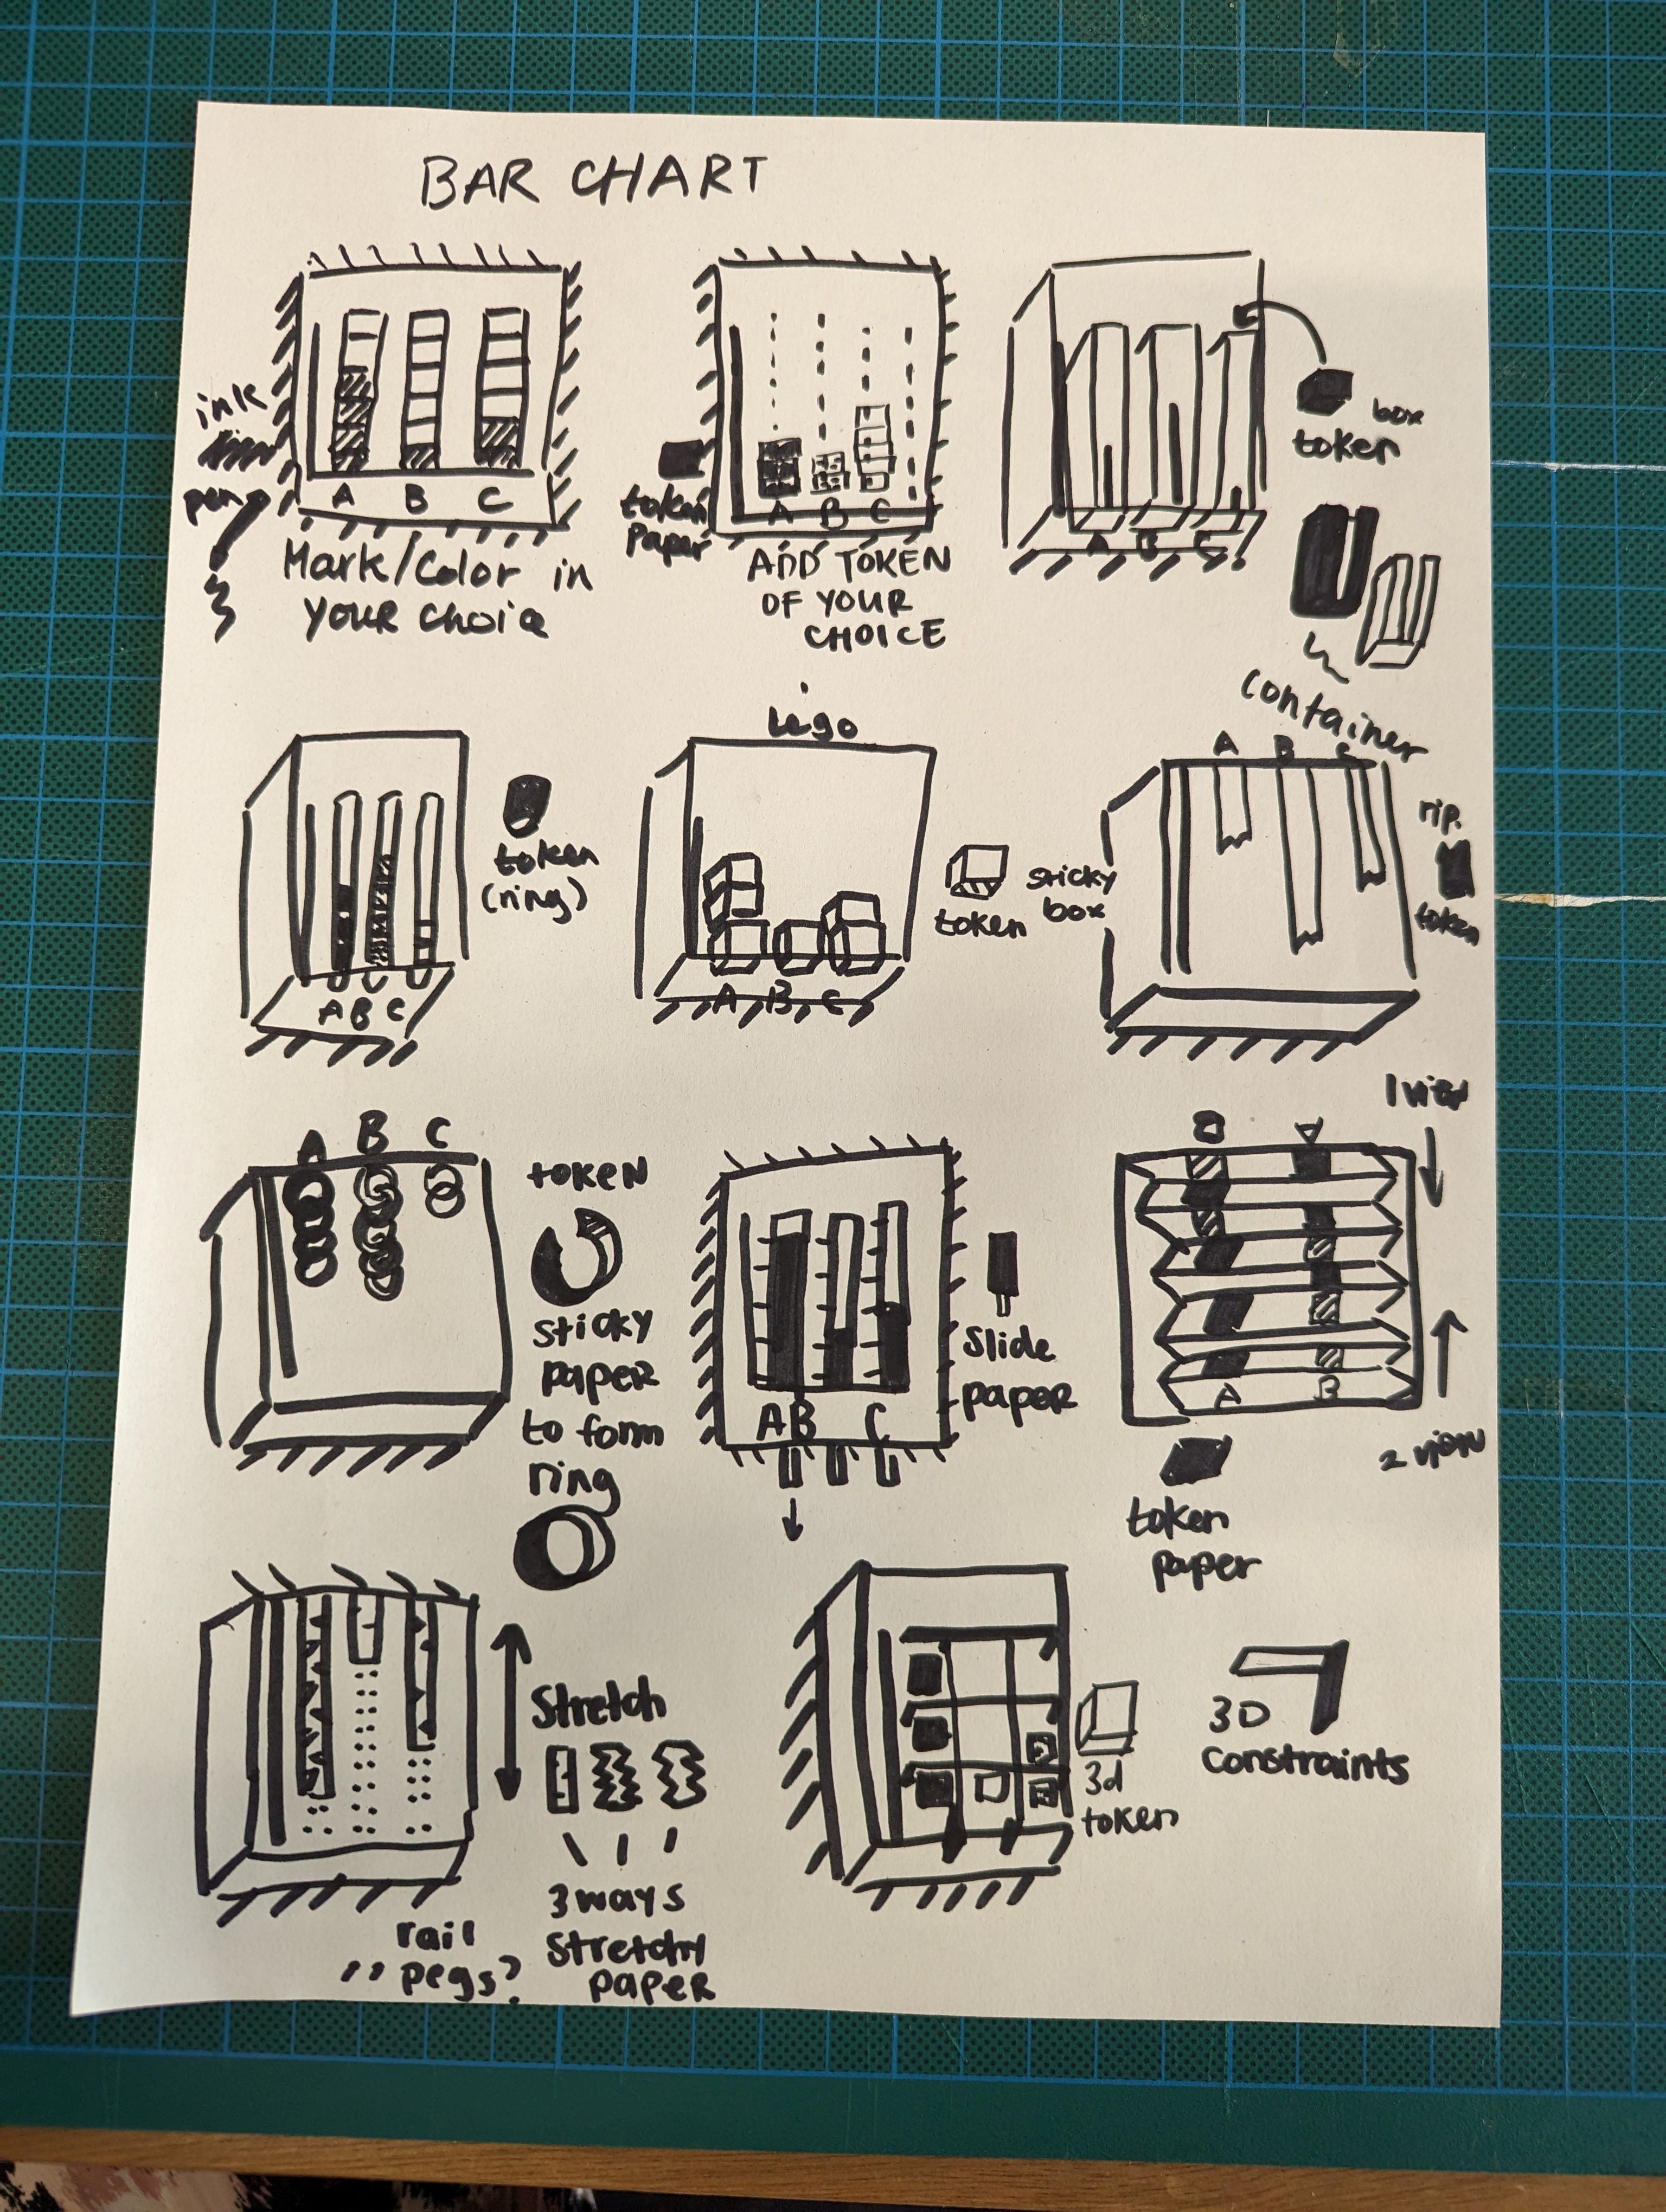 BAR CHART
ink
pen
A B C
Mark/Color in
your choice
token
paper
A B C
ADD TOKEN
OF YOUR
CHOICE
A B C
box
token
container
token
(ring)
A B C
Lego
A B C
token
sticky
box
A B C
rip.
token
A B C
token
sticky
paper
to form
ring
A B C
Slide
paper
1 view
A B
2 view
token
paper
Stretch
3 ways
stretchy
paper
rail
pegs?
3d
token
3D
constraints